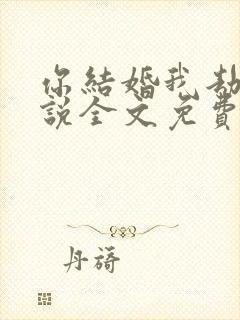 你結婚我劫
說全文免費
丹蒨